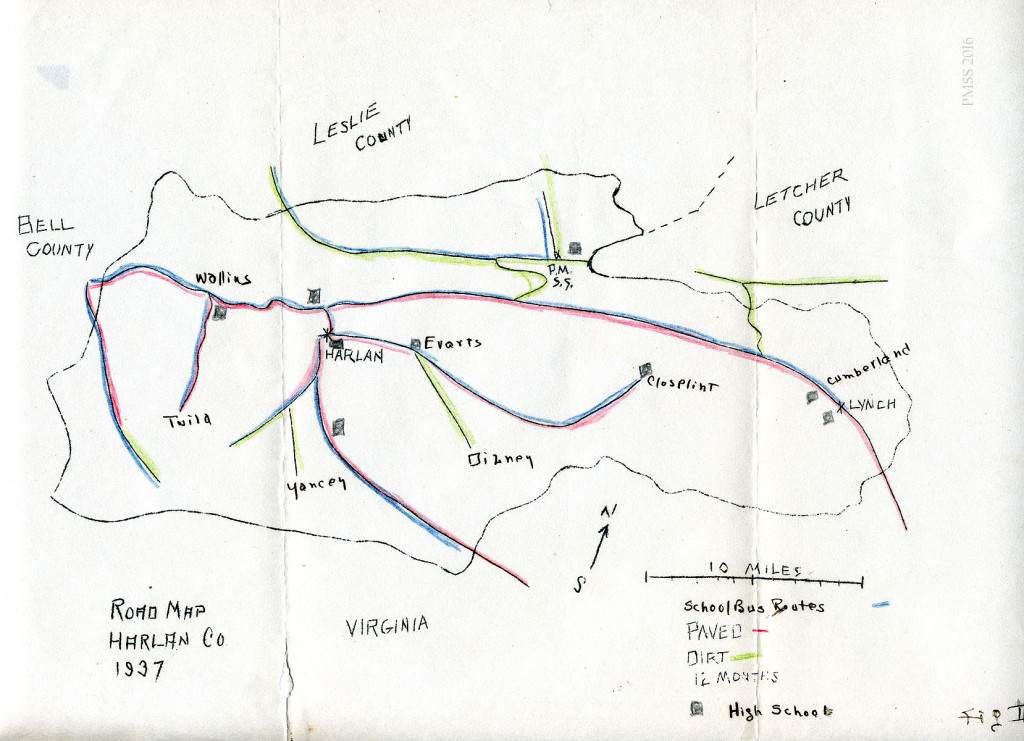 PMSS 2016
LESLIE
COUNTY
LETCHER
COUNTY
BELL
COUNTY
Wallins
P.M.
S.S.
HARLAN
Evarts
Closplint
Cumberland
LYNCH
Twila
Dizney
Yancey
N
S
10 MILES
ROAD MAP
HARLAN CO
1937
VIRGINIA
School Bus Routes
PAVED
DIRT
12 MONTHS
High School
Fig II